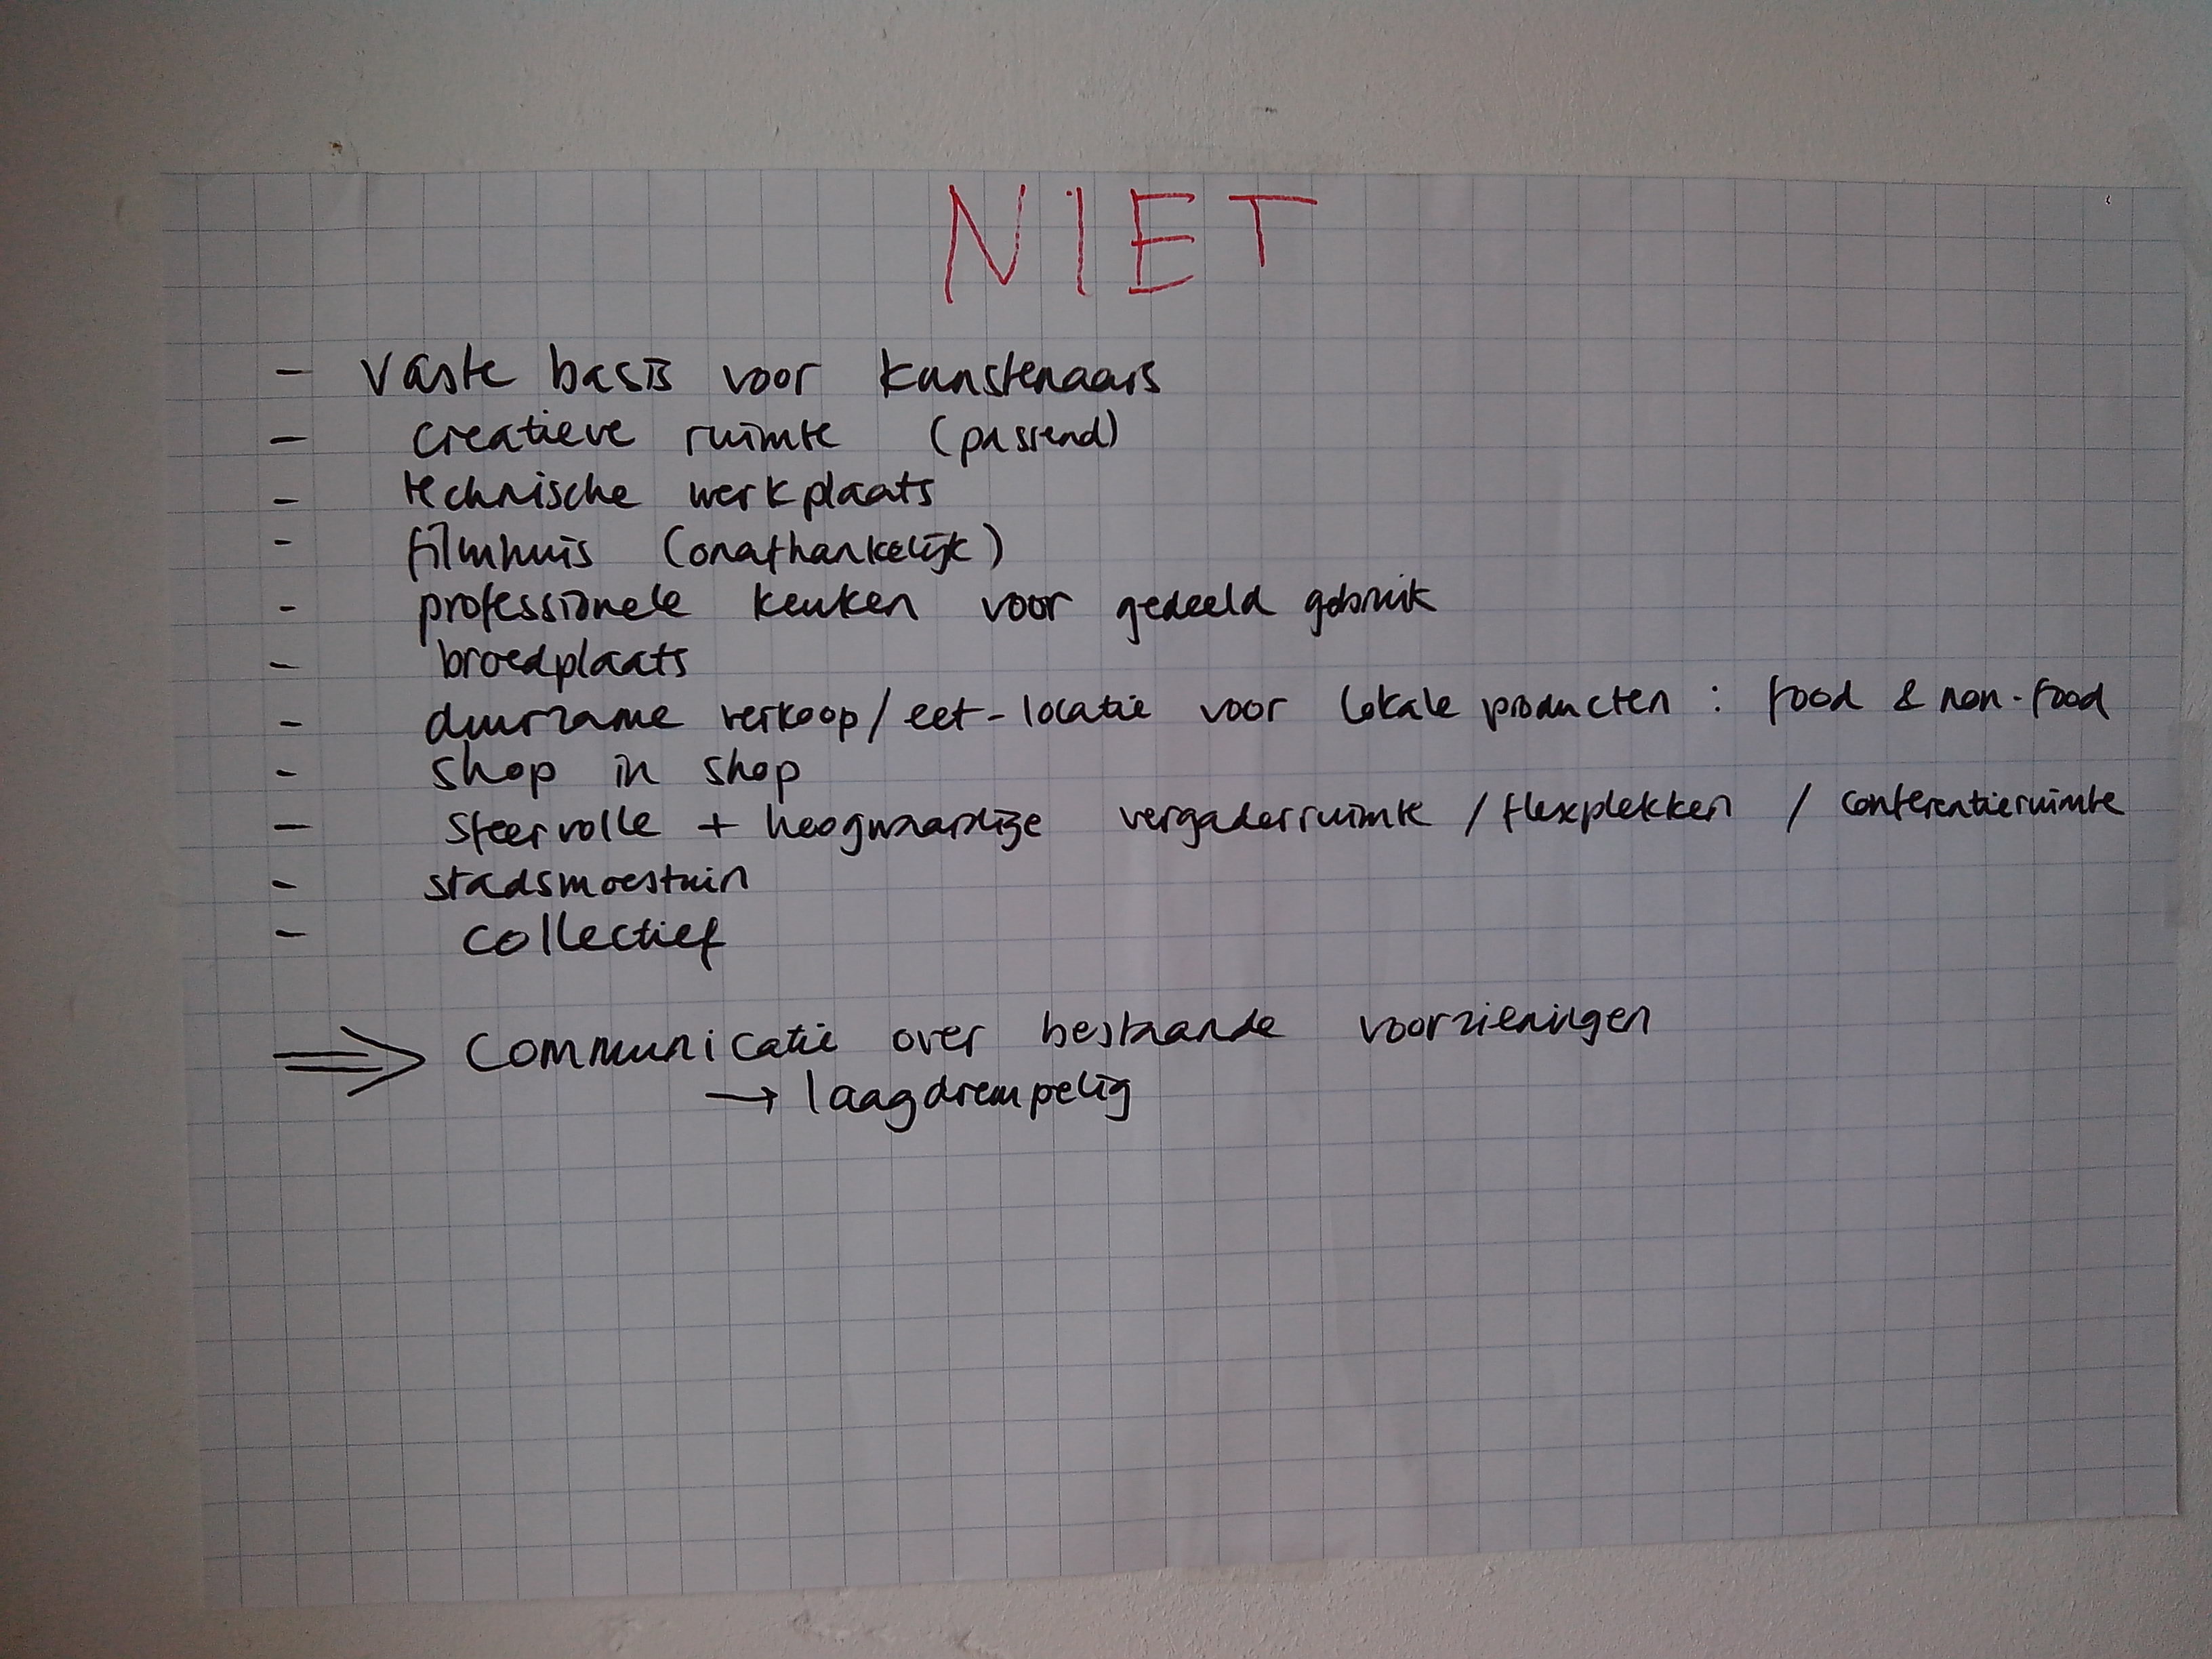 NIET
- vaste basis voor kunstenaars
- creatieve ruimte (passend)
- technische werkplaats
- filmhuis (onafhankelijk)
- professionele keuken voor gedeeld gebruik
- broedplaats
- duurzame verkoop/eet-locatie voor lokale producten : food & non-food
- shop in shop
- sfeervolle + hoogwaardige vergaderruimte / flexplekken / conferentieruimte
- stadsmoestuin
- collectief
⇒ Communicatie over bestaande voorzieningen
→ laagdrempelig